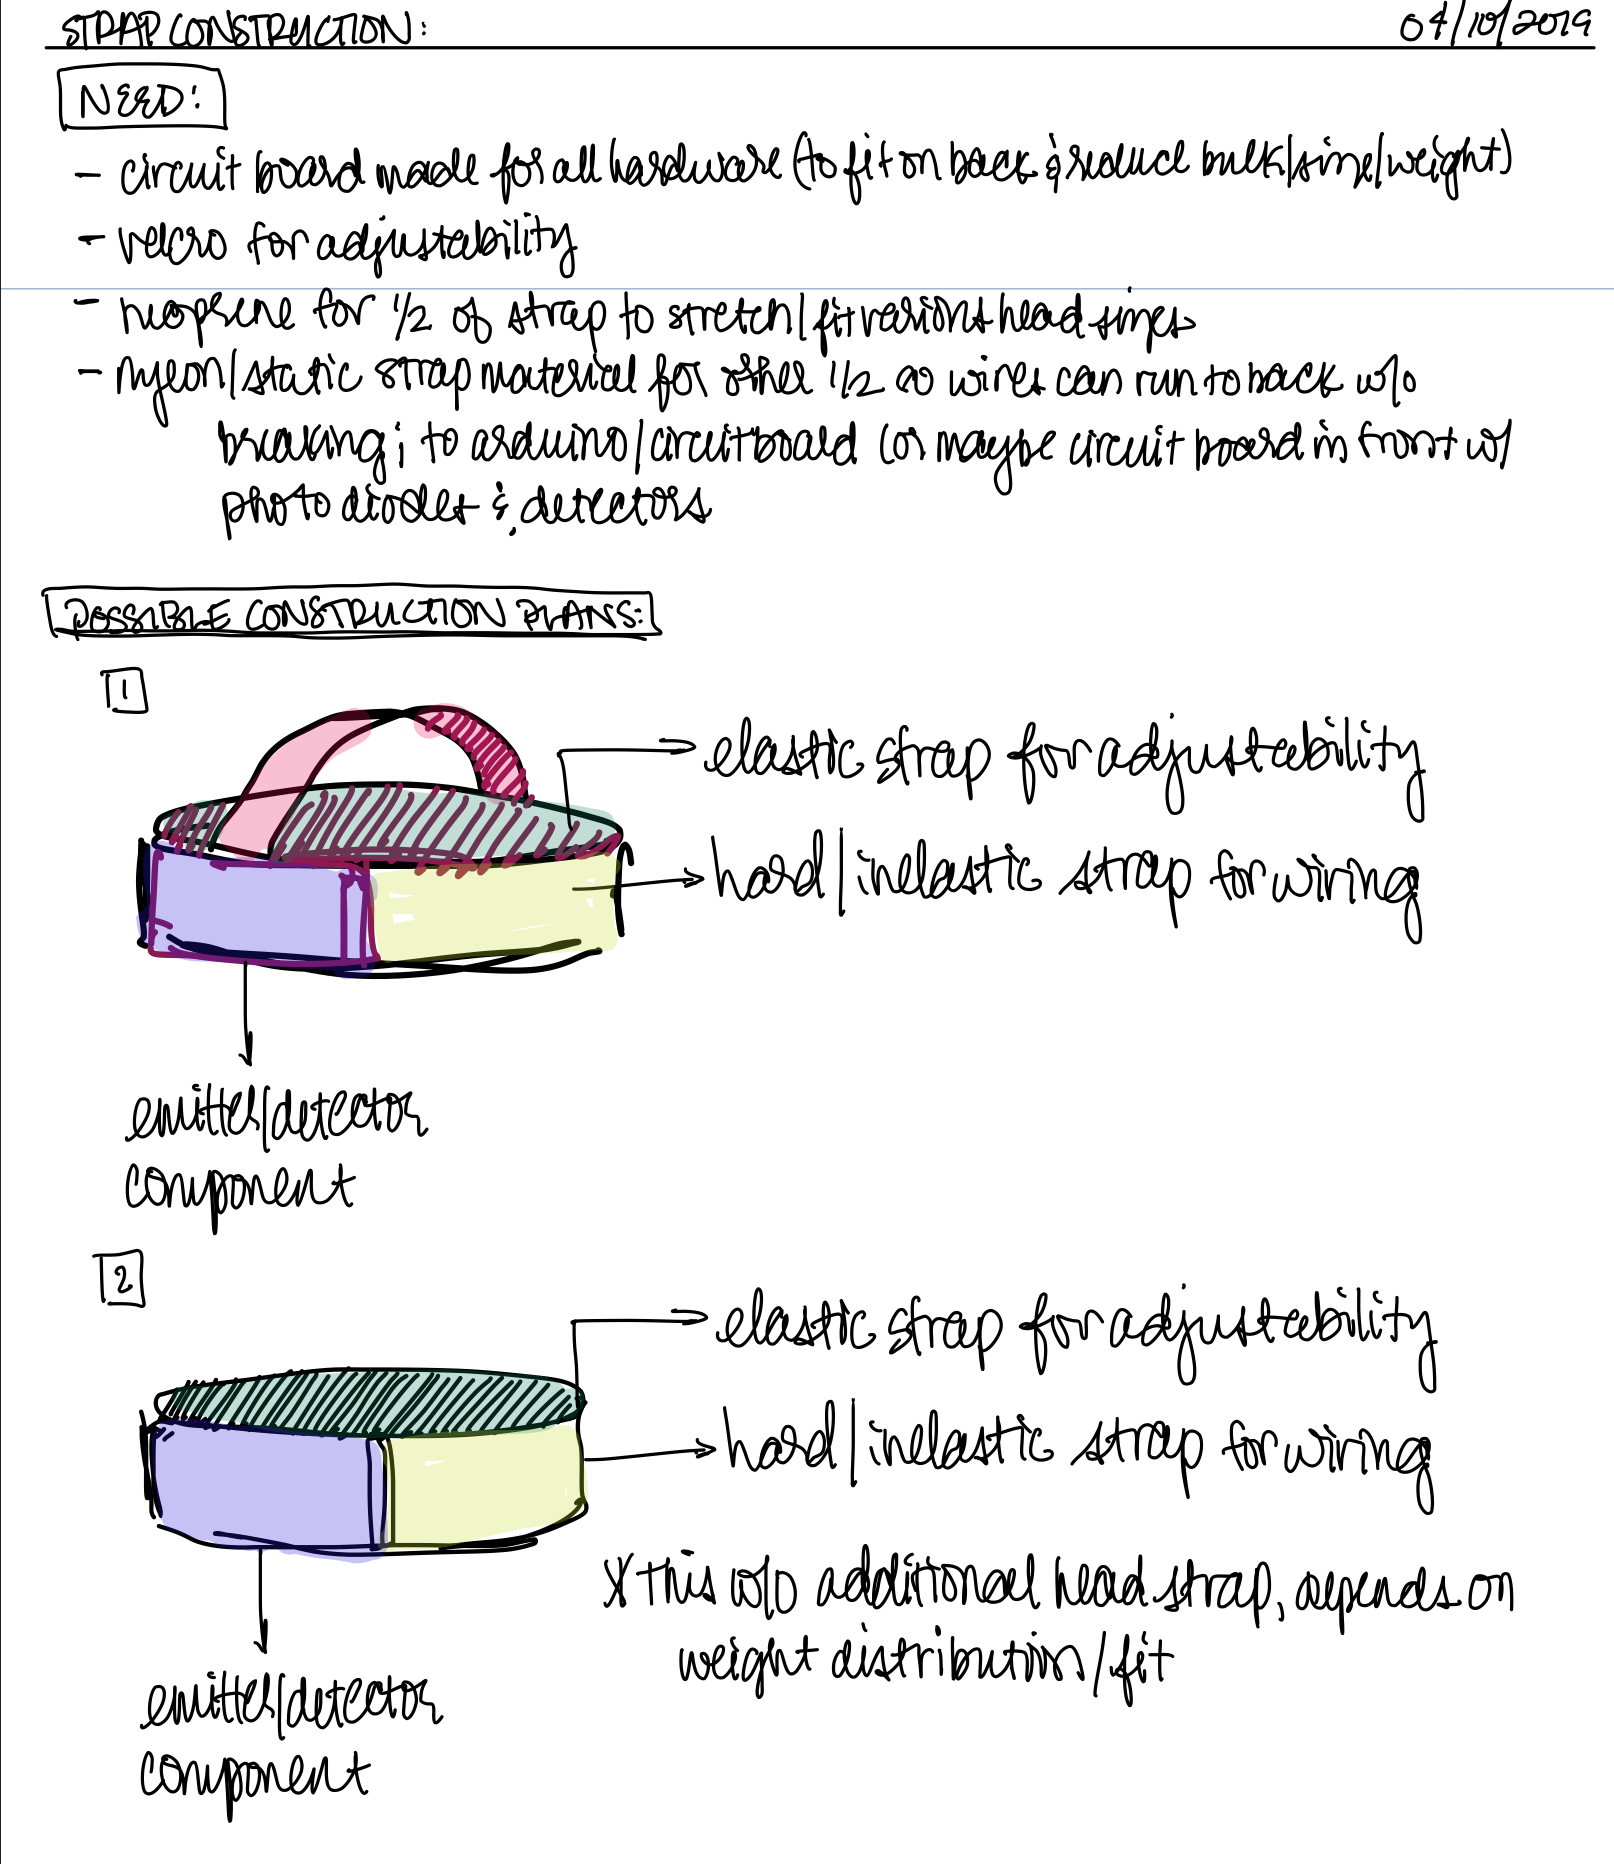 STRAP CONSTRUCTION: 04/10/2019
NEED:
- circuit board made for all hardware (to fit on back & reduce bulk/size/weight)
- velcro for adjustability
- neoprene for 1/2 of strap to stretch/fit various head sizes
- nylon/static strap material for other 1/2 so wires can run to back w/o
breaking; to arduino/circuit board (or maybe circuit board in front w/
photo diodes & detectors
POSSIBLE CONSTRUCTION PLANS:
1
elastic strap for adjustability
hard/inelastic strap for wiring
emitter/detector
component
2
elastic strap for adjustability
hard/inelastic strap for wiring
* this w/o additional head strap, depends on
weight distribution/fit
emitter/detector
component